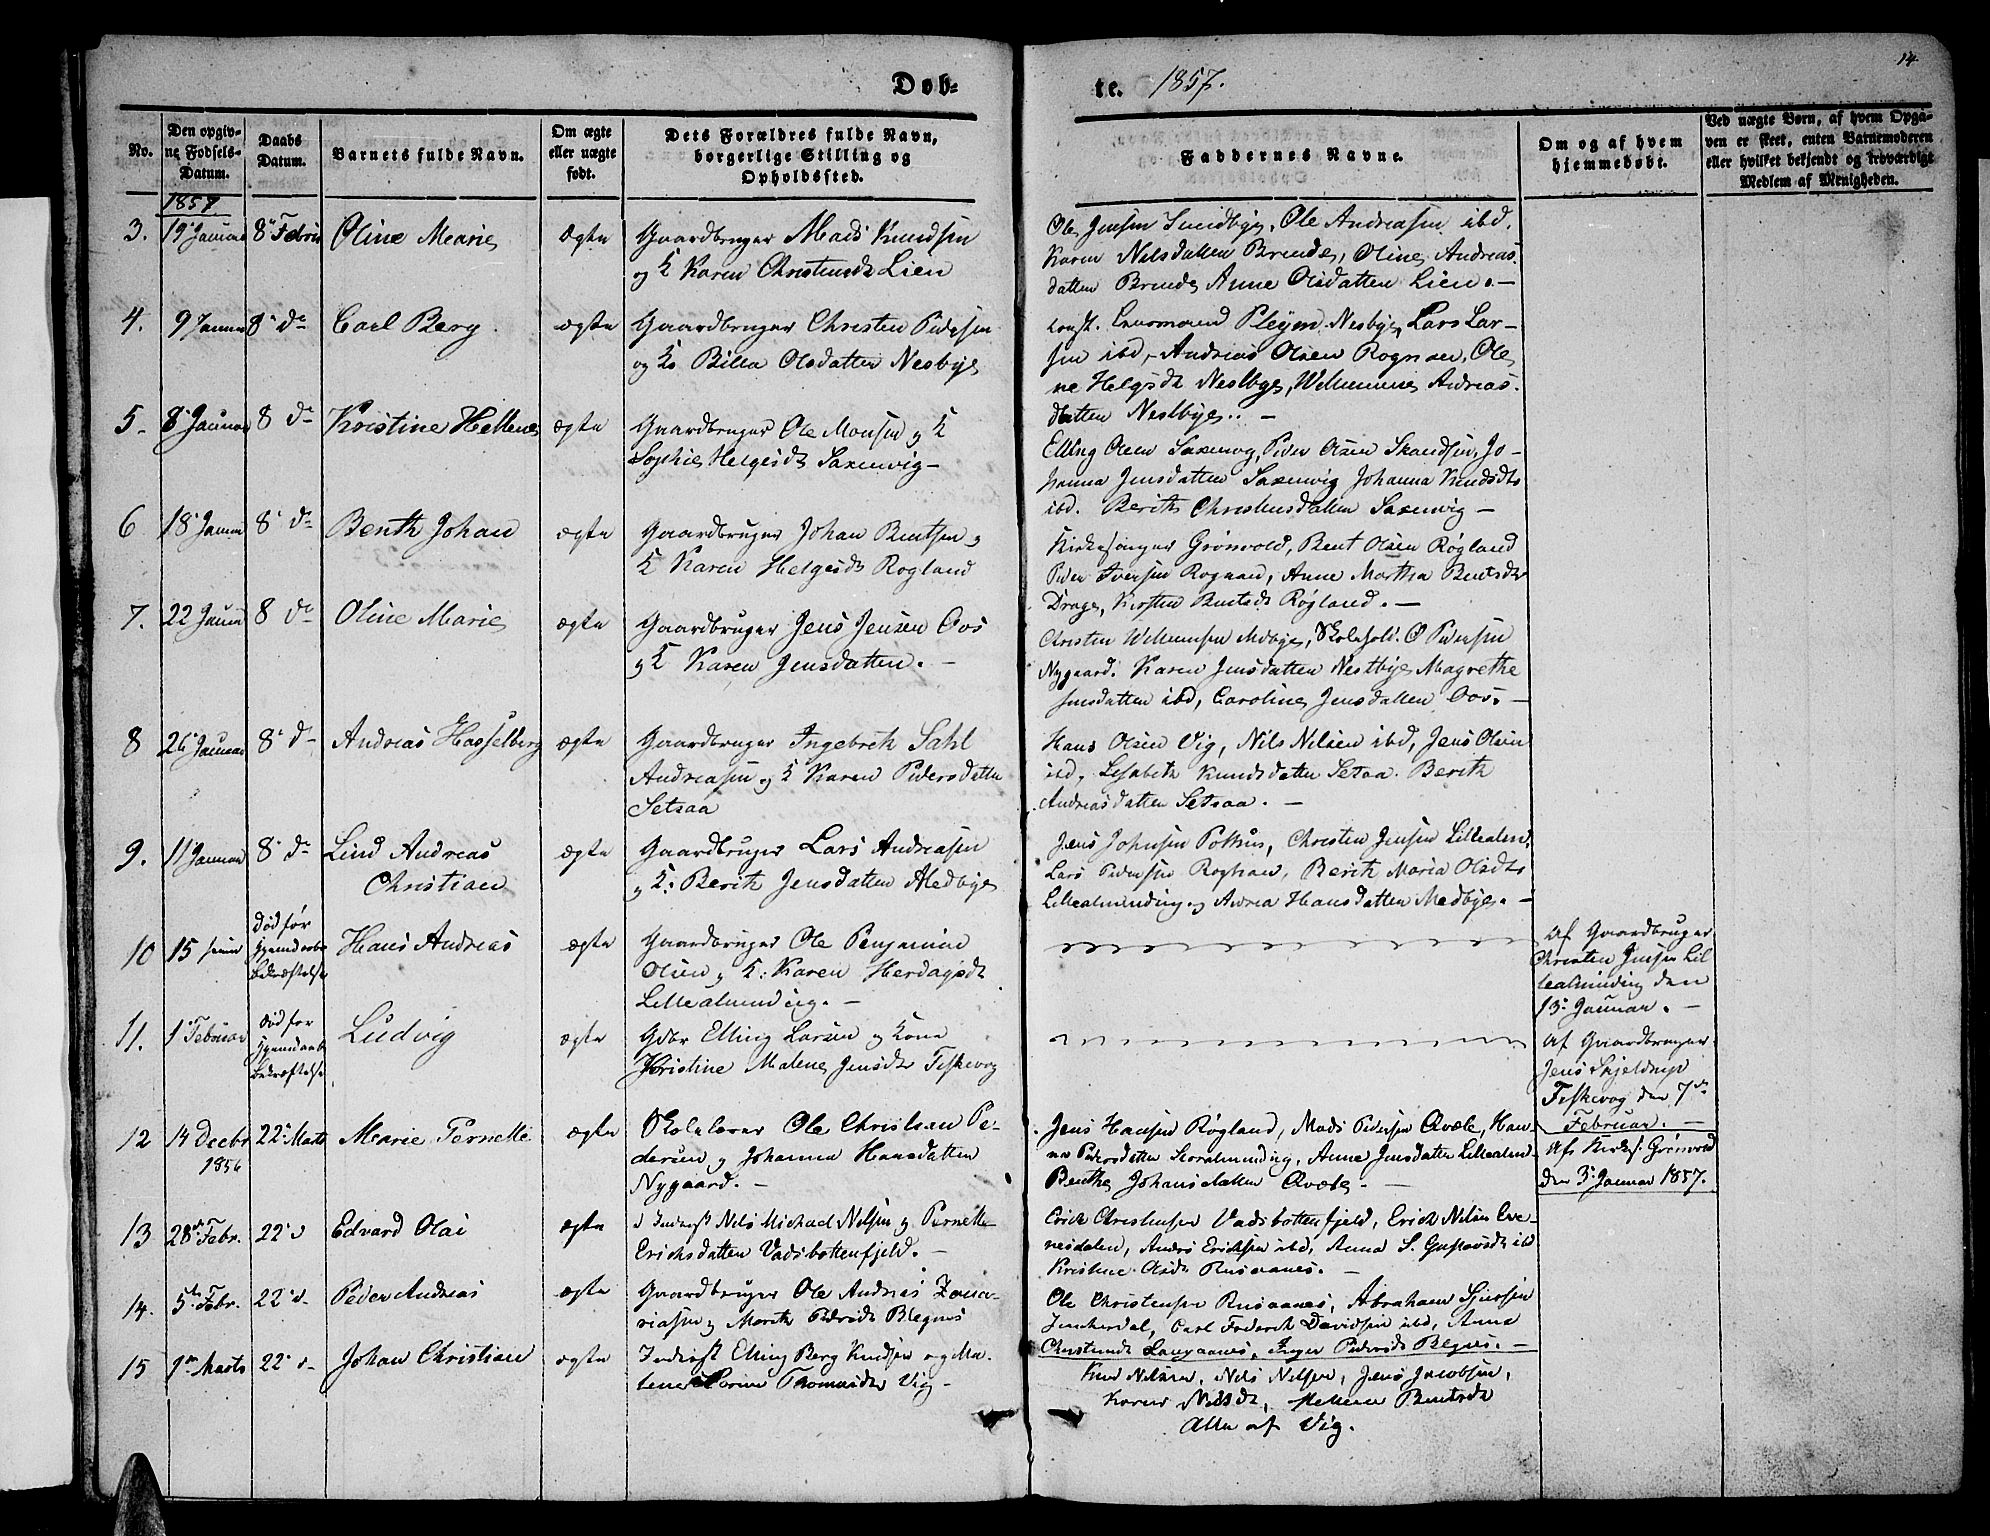 14
Døb-
te. 1857.
No.
Den opgiv-
ne Fødsels-
Datum.
Daabs
Datum.
Barnets fulde Navn.
Om ægte
eller uægte
født.
Dets Forældres fulde Navn,
borgerlige Stilling og
Opholdssted.
Faddernes Navne.
Om og af hvem
hjemmedøbt.
Ved uægte Børn, af hvem Opga-
ven er skeet, enten Barnemoderen
eller hvilket bekjendt og troværdigt
Medlem af Menigheden.
1857.
3. 19 Januar 8 Febru Oline Marie ægte Gaardbruger Mads Knudsen
og K Karen Christensdt Lien
Ole Jensen Sundbye, Ole Andreasen ibd.
Karen Nilsdatter Brende, Oline Andreas
datter Brende Anne Olsdatter Lien.
4. 9 Januar 8 do Carl Berg ægte Gaardbruger Christen Pedersen
og K Olsdatter Nesbye
Pleym Nesbye, Lars Lar-
sen ibd, Andreas Olsen Rognan, Ole
ne Helgesdt Nestbye, Andreas
datter Nestbye.
5 8 Januar 8 do Kristine Hellene ægte Gaardbruger Ole Monsen og K
Sophie Helgesdt Saxenvig
Elling Olsen Saxenvig, Peder Olsen Jo-
hanna Jensdatter Saxenvig Johanna Knudsdt
ibd. Berith Christensdatter Saxenvig
6 18 Januar 8 do Benth Johan ægte Gaardbruger Johan Bentsen og
K Karen Helgesdt Rogland
Kirkesanger Grønvold, Bent Olsen Røgland
Peder Iversen Rognan, Anne Martha Bentsdt
Drage, Kirsten Bentsdt Røgland.
7. 22 Januar 8 do Oline Marie ægte Gaardbruger Jens Jensen Oos
og K Karen Jensdatter.
Christen Willumsen Medbye, Skolehold. O Pedersen
Nygaard. Karen Jensdatter Nestbye Magrethe
Jensdatter ibd, Caroline Jensdatter Oos.
8 26 Januar 8 do Andreas Hasselberg ægte Gaardbruger Ingebrik Sahl
Andreasen og K Karen Pedersdatter
Setsaa
Hans Olsen Vig, Nils Nilsen ibd, Jens Olsen
ibd, Lisabeth Knudsdatter Setsaa. Berith
Andreasdatter Setsaa.
9. 11 Januar 8 do Lind Andreas
Christian ægte Gaardbruger Lars Andreasen
og K: Berith Jensdatter Medbye
Jens Johnsen Christen Jensen Lillealm.
Lars Pedersen Rognan, Berith Maria Olsdt
Lillealmending og Hansdatter Medbye.
10 15 Død før
Hjemdaabs
Bekræftelse Hans Andreas ægte Gaardbruger Ole Benjamine
Olsen og K: Karen Herdagsdt
Lillealmending.
Af Gaardbruger
Christen Jensen Lil
lealmending den
13 Januar.
11. 1 Februar død før
Hjemdaabs
Bekræftelse Ludvig ægte Gdbr Elling Larsen og Kone
Kristine Malene Jensdt Fiskevog
Af Gaardbruger
Jens Skjeldrup
Fiskevog den 7de
Februar.
12 14 Decbr
1856 22 Marts Marie Pernelle ægte Skolelærer Ole Christian Pe-
dersen og Johanna Hansdatter
Nygaard.
Jens Hansen Røgland, Mads Pedersen Qvæle, Han-
na Pedersdatter Storalmending, Anne Jensdatter Lillealm.
Benthe Johansdatter Qvæle.
Af Kirkes. Grønvold
den 3 Januar 1857.
13 28 Febr. 22 d Edvard Olai ægte Inderst Nils Michael Nilsen og Pernelle
Erichsdatter Vadsbottenfjeld.
Erick Christensen Vadsbottenfjeld, Erick Nilsen Eve-
nesdalen, Anders Ericksen ibd, Anna S. Gustavsdt ibd
Kristine Olsdt Rusaanes.
14. 5te Febr. 22 d Peder Andreas ægte Gaardbruger Ole Andreas Zaca-
riasen og Marith Pedersdt
Ole Christensen Rusaanes, Abrahan
Junkerdal, Carl Frederik Davidsen ibd, Anna
Christensdt Inger Pedersdt
15 1ste Marts 22 d Johan Christian ægte Inderst Elling Berg Knudsen og Ma-
lene Thomasdt Vig
Nilsen, Nils Nilsen, Jens Jacobsen,
Karen Nilsdt, Bentsdt
Alle af Vig.